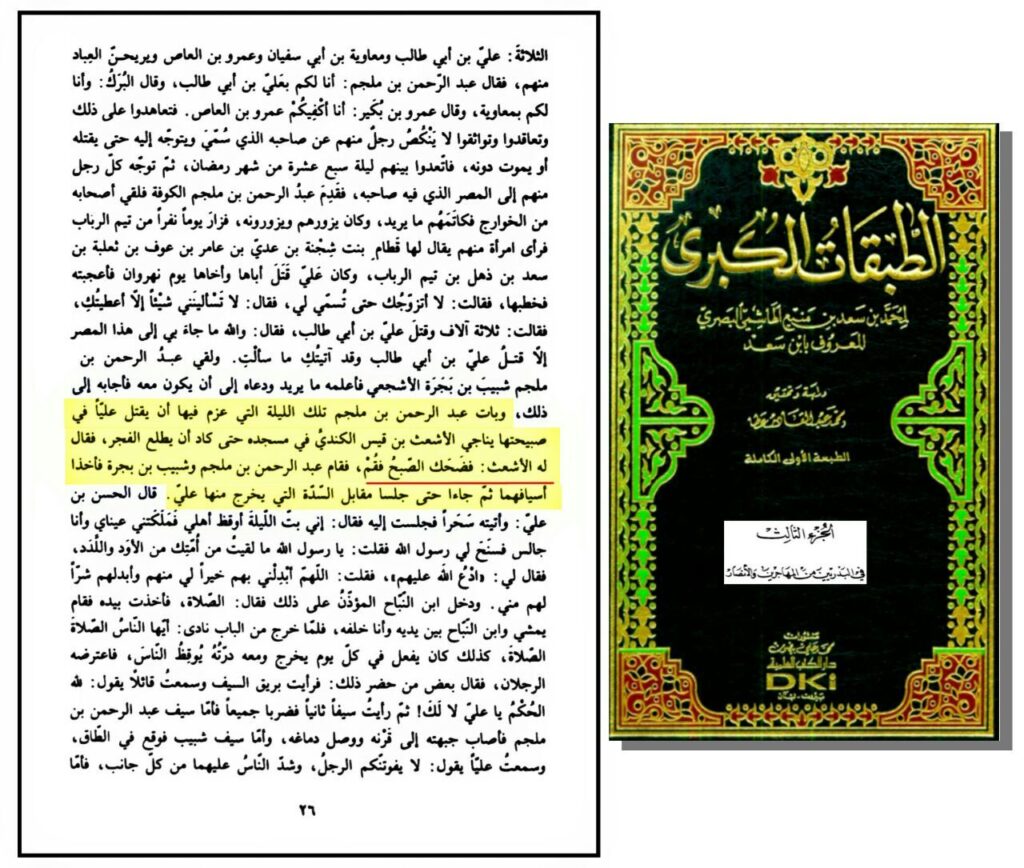 الثلاثةَ: عليّ بن أبي طالب ومعاوية بن أبي سفيان وعمرو بن العاص ويريحنّ العِباد
منهم، فقال عبد الرّحمن بن ملجم: أنا لكم بعَليّ بن أبي طالب، وقال البُرَكُ: وأنا
لكم بمعاوية، وقال عمرو بن بُكَير: أنا أكْفِيكُمْ عمرو بن العاص. فتعاهدوا على ذلك
وتعاقدوا وتواثقوا لا يَنْكُصُ رجلٌ منهم عن صاحبه الذي سُمّيَ ويتوجّه إليه حتى يقتله
أو يموت دونه، فاتّعدوا بينهم ليلة سبع عشرة من شهر رمضان، ثمّ توجّه كلّ رجل
منهم إلى المصر الذي فيه صاحبه، فقَدِمَ عبدُ الرحمن بن ملجم الكوفة فلقي أصحابه
من الخوارج فكاتَمَهُم ما يريد، وكان يزورهم ويزورونه، فزارَ يوماً نفراً من تيم الرباب
فرأى امرأة منهم يقال لها قَطامِ بنت شِجْنة بن عديّ بن عامر بن عوف بن ثعلبة بن
سعد بن ذهل بن تيم الرباب، وكان عَليّ قَتَلَ أباها وأخاها يوم نهروان فأعجبته
فخطبها، فقالت: لا أتزوّجك حتى تُسمّي لي، فقال: لا تَسْأليَنني شَيْئاً إلّا أعطيتُكِ،
فقالت: ثلاثة آلاف وقتلَ عليّ بن أبي طالب، فقال: والله ما جاءَ بي إلى هذا المصر
إلّا قتلُ عليّ بن أبي طالب وقد آتيتُكِ ما سألتِ. ولقي عبدُ الرحمن بن
ملجم شبيبَ بن بَجَرَة الأشجعي فأعلمه ما يريد ودعاه إلى أن يكون معه فأجابه إلى
ذلك، وبات عبد الرحمن بن ملجم تلك الليلة التي عزم فيها أن يقتل عليّاً في
صبيحتها يناجي الأشعث بن قيس الكنديّ في مسجده حتى كاد أن يطلع الفجر، فقال
له الأشعث: فضَحَك الصّبحُ فقُمْ، فقام عبد الرحمن بن ملجم وشبيب بن بجرة فأخذا
أسيافهما ثمّ جاءا حتى جلسا مقابل السّدّة التي يخرج منها عليّ. قال الحسن بن
عليّ: وأتيته سَحَراً فجلست إليه فقال: إني بتّ اللّيلةَ أوقظ أهلي فَمَلَكَتني عيناي وأنا
جالس فسنَحَ لي رسول الله فقلت: يا رسول الله ما لقيتُ من أمّتِك من الأوَد واللّدَد،
فقال لي: «ادْعُ اللهَ عليهم»، فقلت: اللّهمّ أبْدِلْني بهم خيراً لي منهم وأبدلهم شرّاً
لهم مني. ودخل ابن النّبّاح المؤذّنُ على ذلك فقال: الصّلاة، فأخذت بيده فقام
يمشي وابن النّبّاح بين يديه وأنا خلفه، فلمّا خرج من الباب نادى: أيّها النّاسُ الصّلاةَ
الصّلاةَ، كذلك كان يفعل في كلّ يوم يخرج ومعه درّتُهُ يُوقِظُ النّاسَ، فاعترضه
الرجلان، فقال بعض من حضر ذلك: فرأيت بريق السيف وسمعتُ قائلاً يقول: لله
الحُكْمُ يا عليّ لا لَكَ! ثمّ رأيتُ سيفاً ثانياً فضربا جميعاً فأمّا سيف عبد الرحمن بن
ملجم فأصاب جبهته إلى قَرْنه ووصل دماغه، وأمّا سيف شبيب فوقع في الطّاق،
وسمعتُ عليّاً يقول: لا يفوتنّكم الرجلُ، وشدّ النّاسُ عليهما من كلّ جانب، فأمّا
٢٦
الطبقات الكبرى
لمحمد بن سعد بن منيع الهاشمي البصري
المعروف بابن سعد
دراسة وتحقيق
محمد عبد القادر عطا
الطبعة الأولى الكاملة
الجزء الثالث
في البدريين من المهاجرين والأنصار
منشورات
محمد علي بيضون
دار الكتب العلمية
DKi
بيروت - لبنان